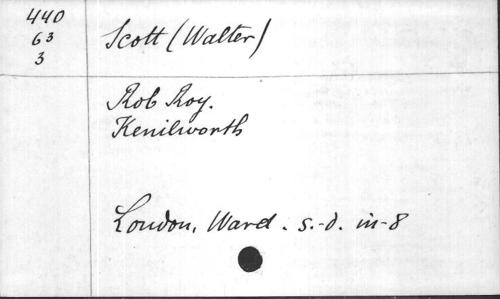 440
63
3
Scott (Walter)
Rob Roy.
Kenilworth
London, Ward. s.-d. in-8